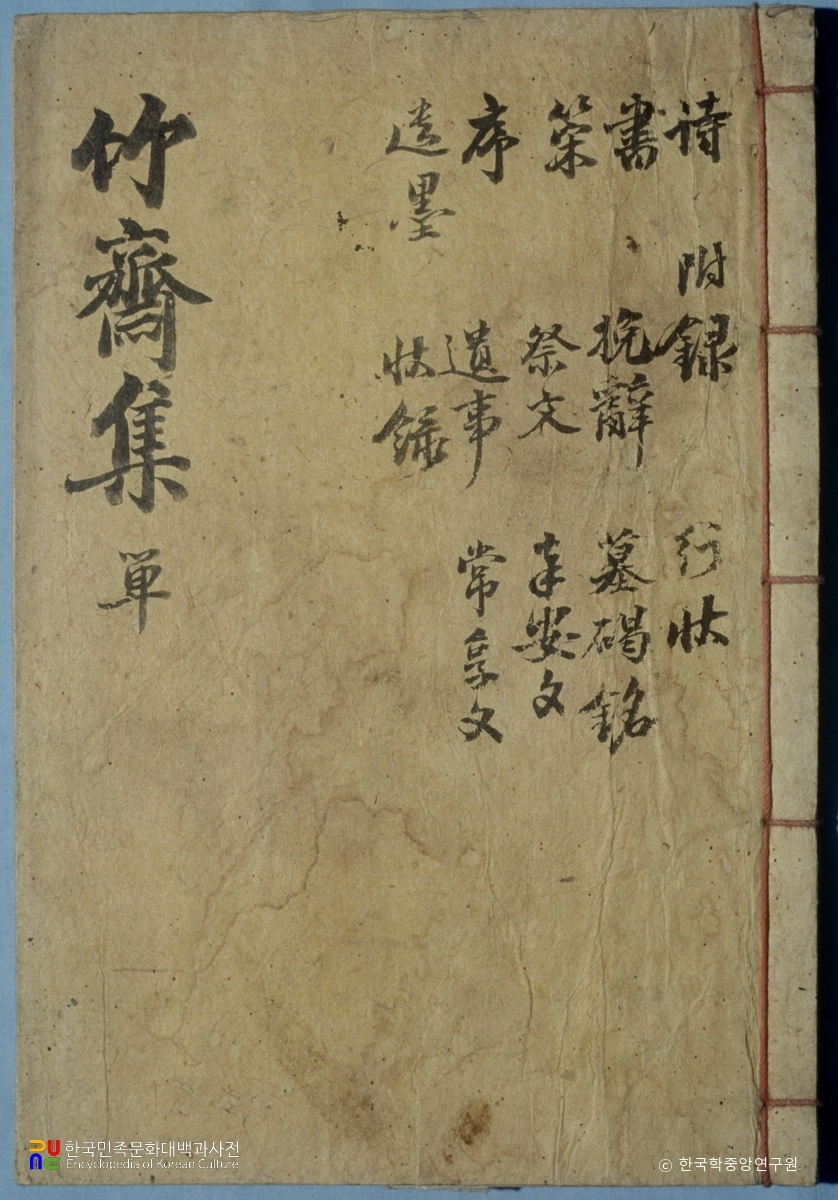 詩 附錄 行狀
書 挽辭 墓碣銘
策 祭文 奉安文
序 遺事 常享文
遺墨 狀錄
竹齋集 単
한국민족문화대백과사전
Encyclopedia of Korean Culture
© 한국학중앙연구원